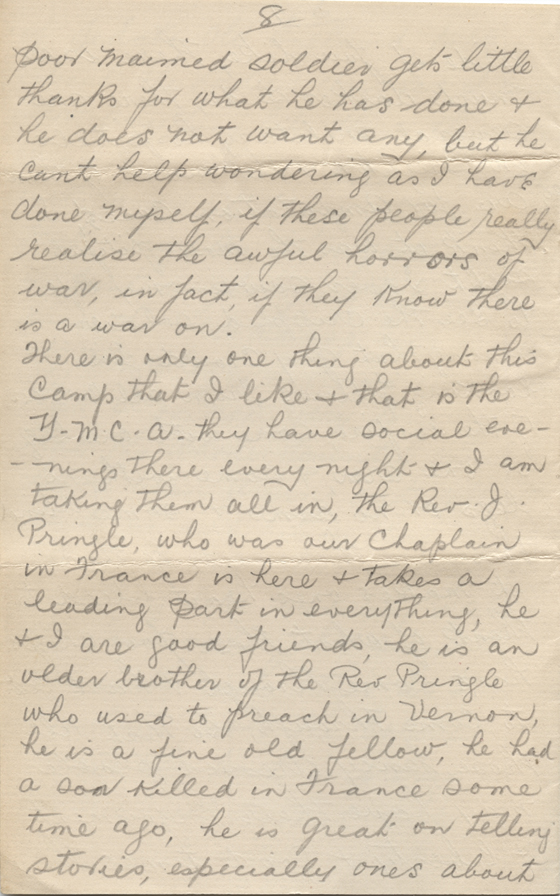 8
poor maimed soldier gets little
thanks for what he has done &
he does not want any, but he
cant help wondering as I have
done myself, if these people really
realise the awful horrors of
war, in fact, if they know there
is a war on.
There is only one thing about this
Camp that I like & that is the
Y-M C. A- they have social eve-
-nings there every night & I am
taking them all in, the Rev. J.
Pringle, who was our Chaplain
in France is here & takes a
leading part in everything, he
& I are good friends, he is an
older brother of the Rev Pringle
who used to preach in Vernon,
he is a fine old fellow, he had
a son killed in France some
time ago, he is great on telling
stories, especially ones about